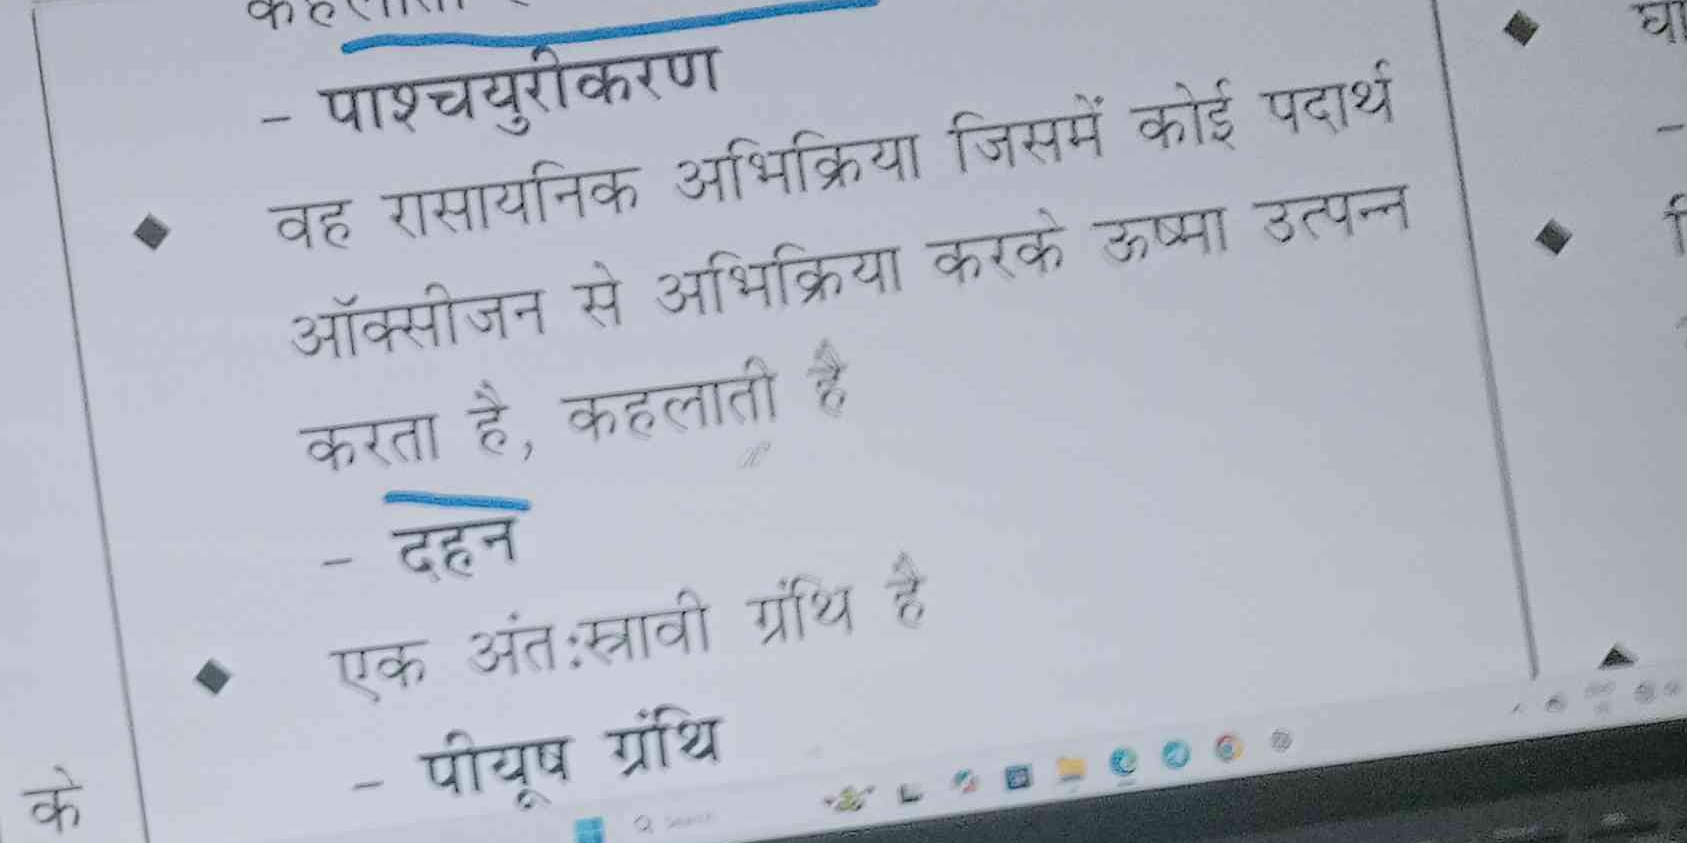 - पाश्चयुरीकरण
वह रासायनिक अभिक्रिया जिसमें कोई पदार्थ
ऑक्सीजन से अभिक्रिया करके ऊष्मा उत्पन्न
करता है, कहलाती है
- दहन
एक अंत:स्रावी ग्रंथि है
- पीयूष ग्रंथि
के